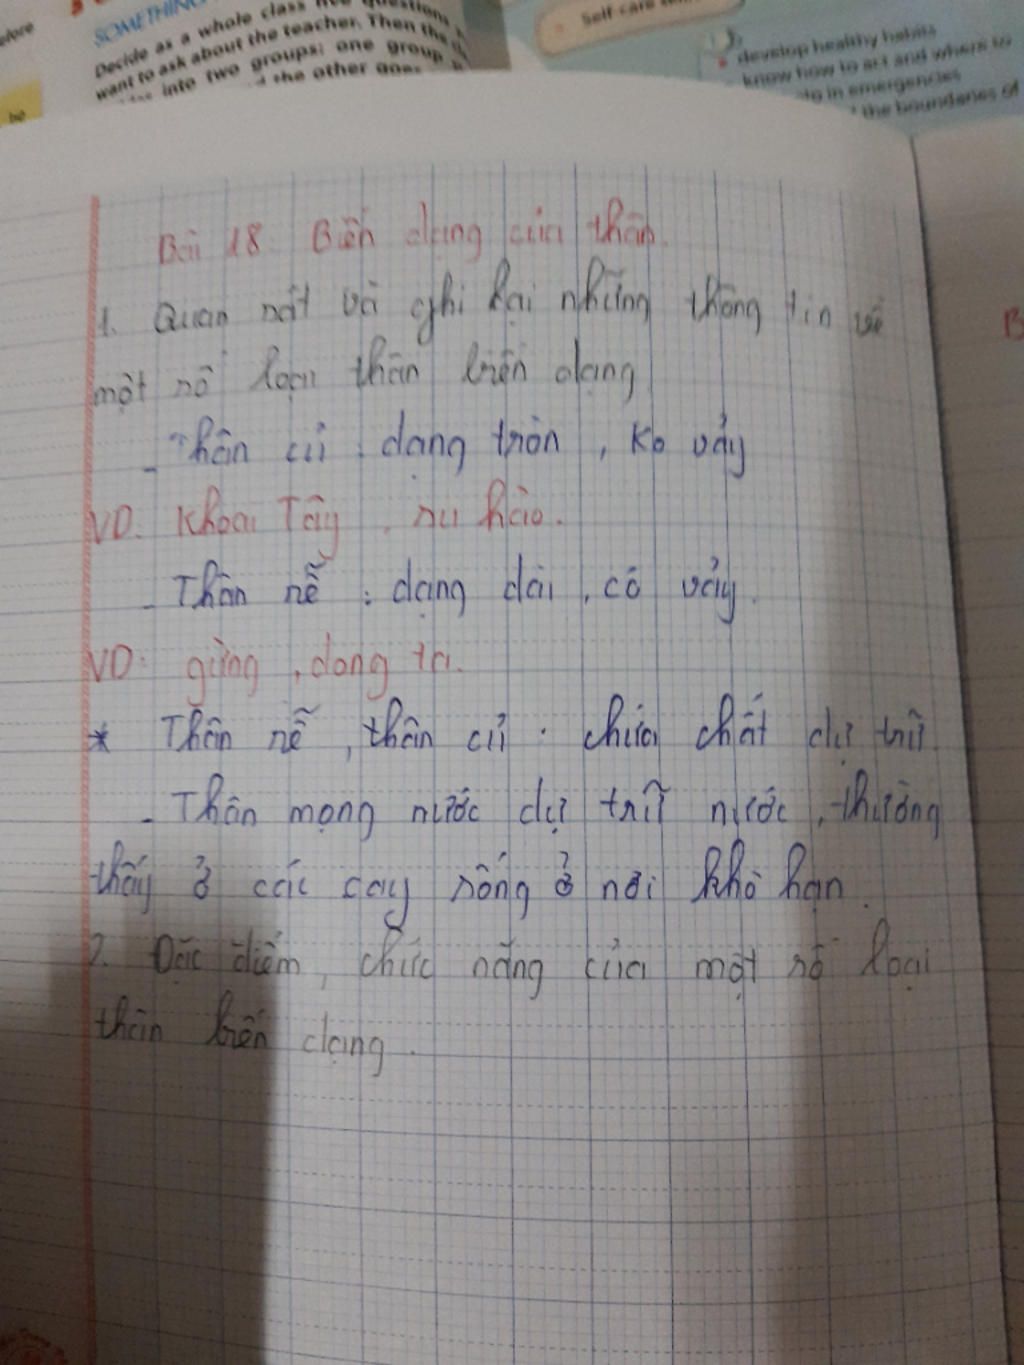 SOMETHING
Decide as a whole class five questions
want to ask about the teacher. Then the
into two groups: one group
the other
Self-care
develop healthy habits
know how to act and where to
in emergencies
the boundaries of
Bài 18 Biến dạng của thân.
1. Quan sát và ghi lại những thông tin về
một số loại thân biến dạng
- Thân củ : dạng tròn , Ko vảy
VD: Khoai Tây , su hào.
- Thân rễ : dạng dài , có vảy.
VD: gừng , dong ta.
* Thân rễ , thân củ : chứa chất dự trữ
- Thân mọng nước dự trữ nước , thường
thấy ở các cây sống ở nơi khô hạn.
2. Đặc điểm , chức năng của một số loại
thân biến dạng.
B